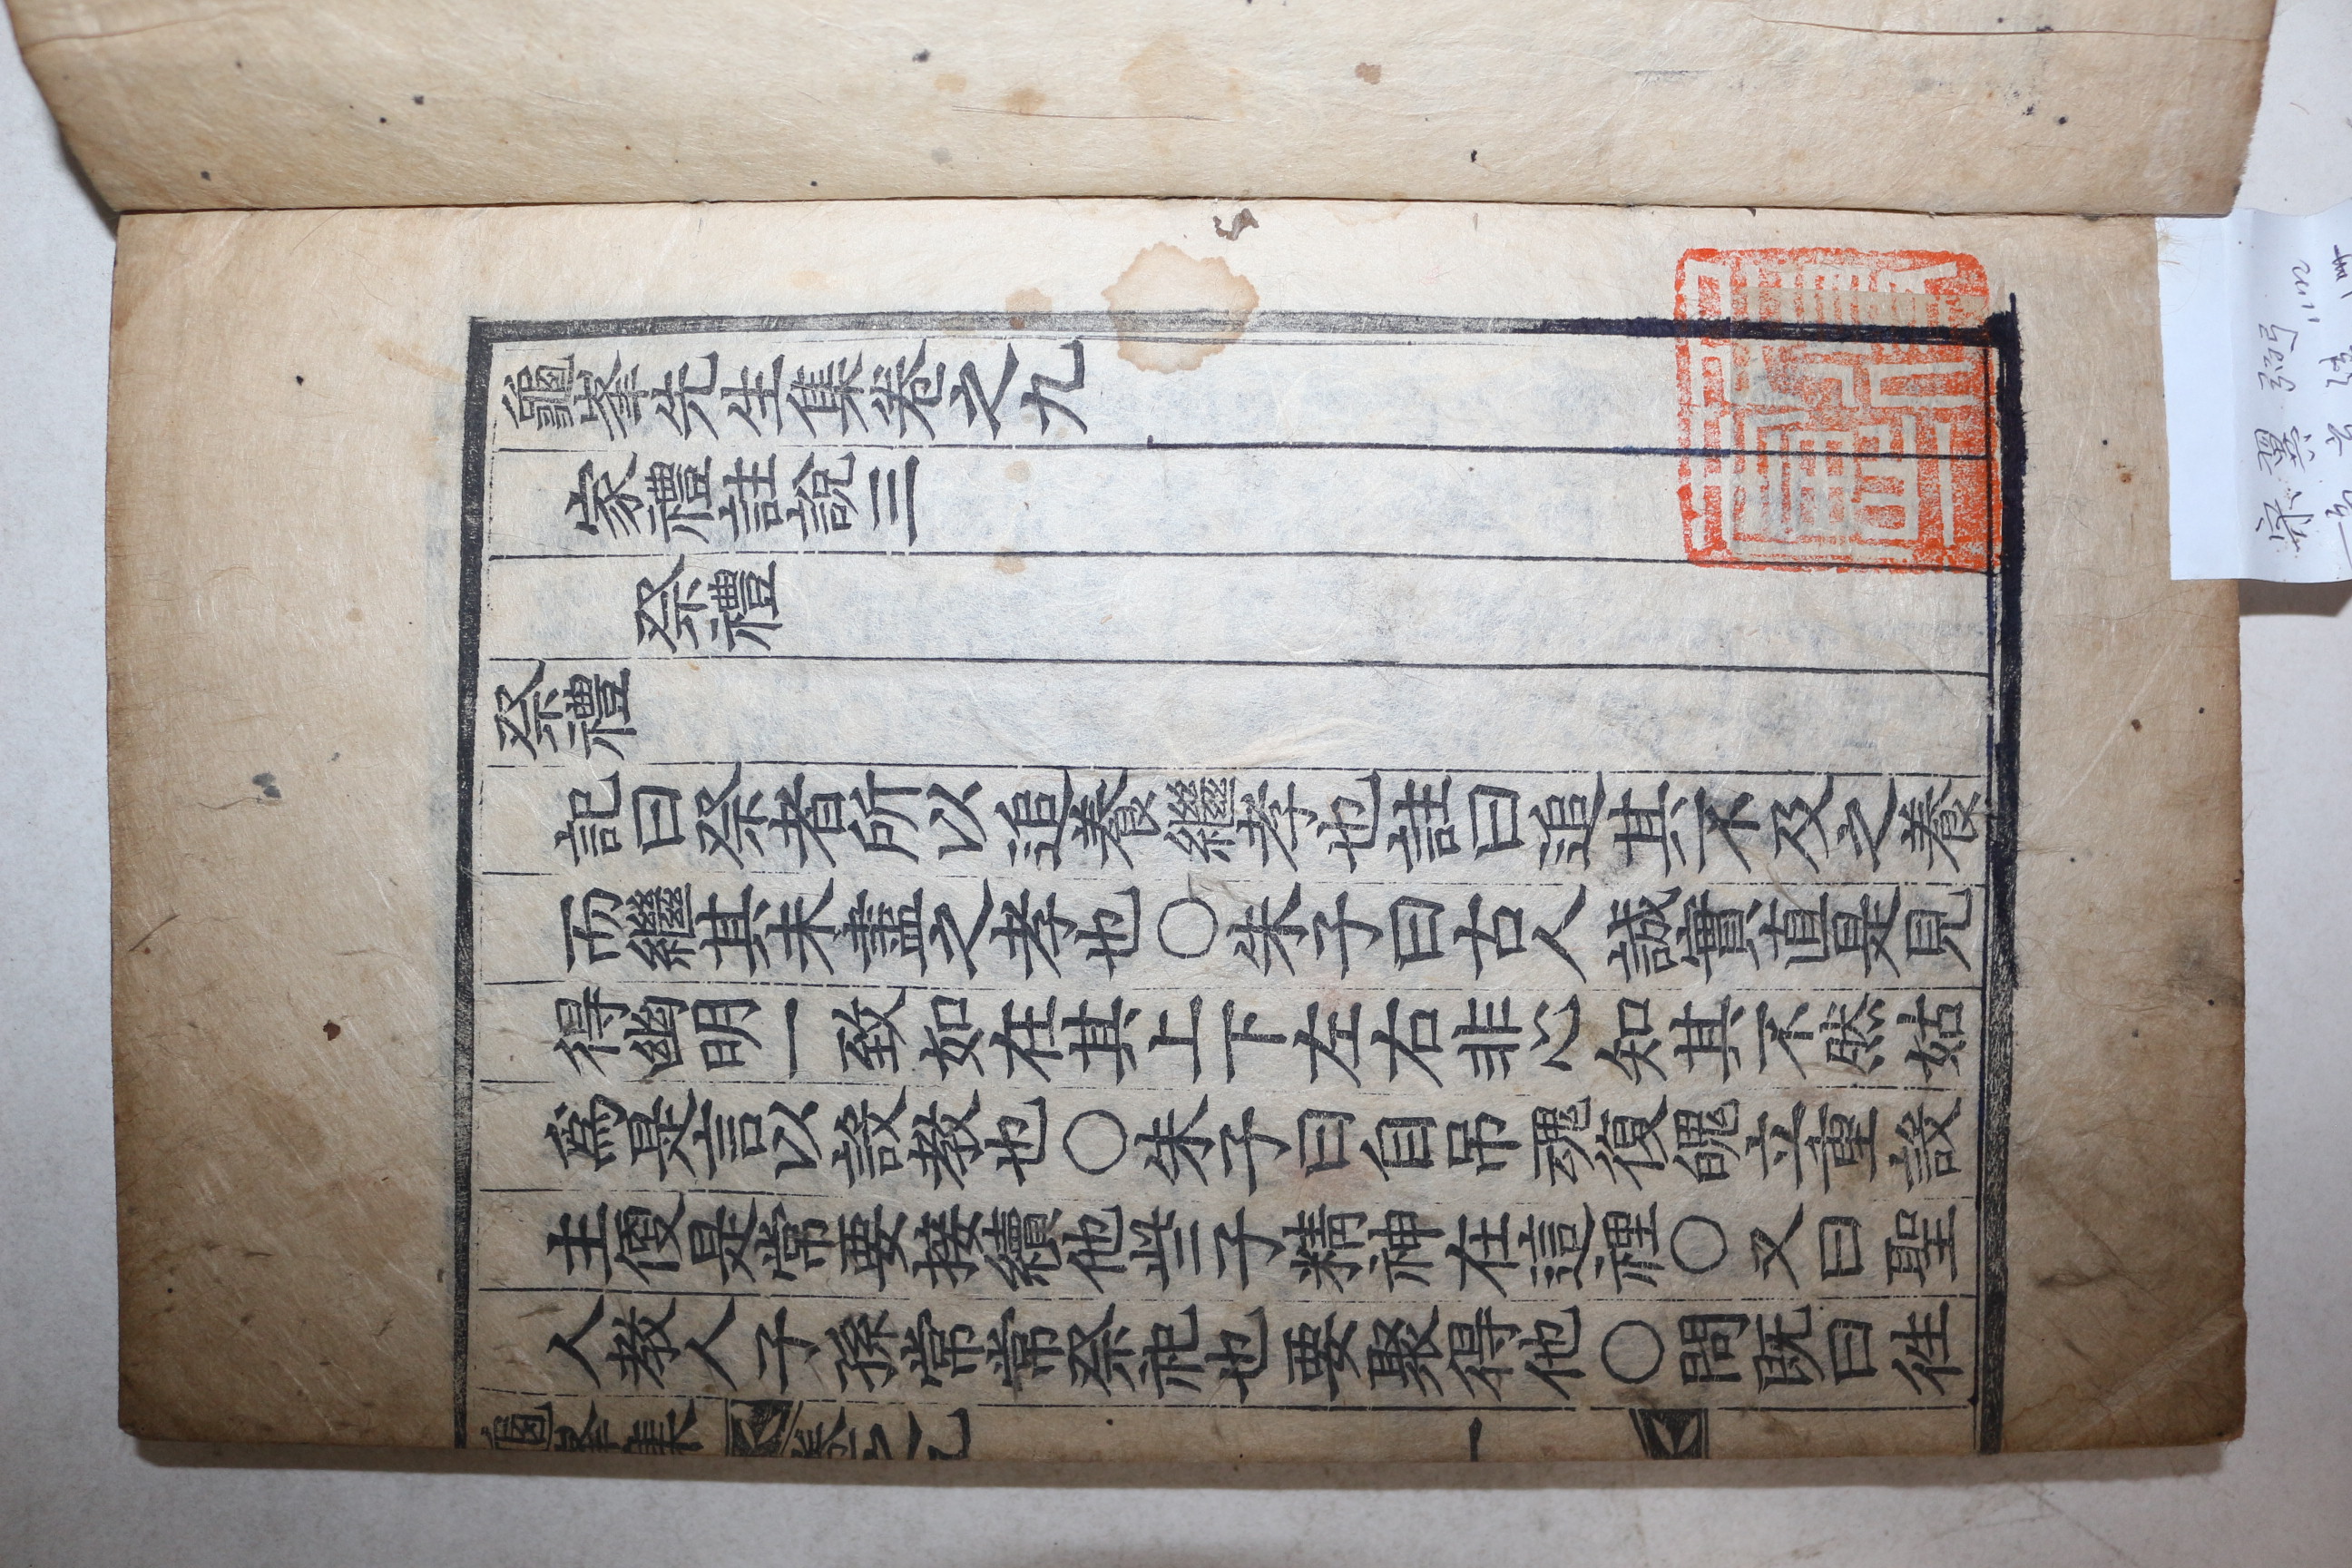 龜峯先生集卷之九
家禮註說三
祭禮
祭禮
記曰祭者所以追養繼孝也註曰追其不及之養
而繼其未盡之孝也○朱子曰古人誠實直是見
得幽明一致如在其上下左右非心知其不然姑
爲是言以設教也○朱子曰自吊魂復魄立重設
主便是常要接續他些子精神在這裡○又曰聖
人教人子孫常常祭祀也要聚得他○問旣曰往
龜峯集 卷之九 一
宋翼弼